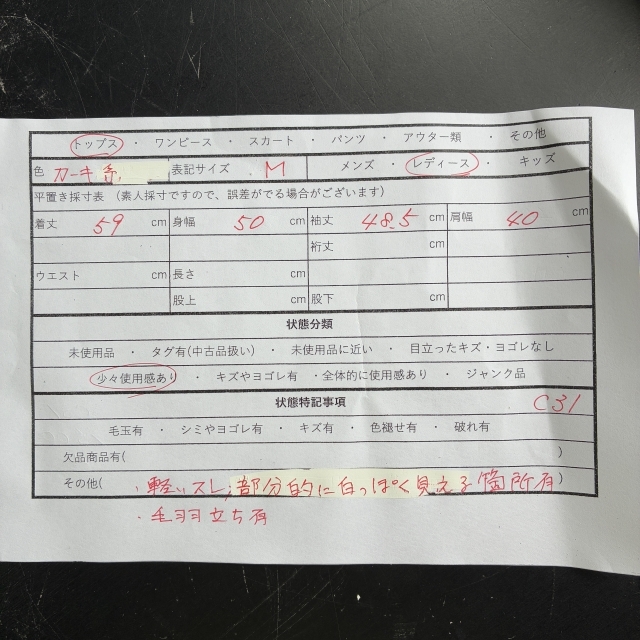 トップス ・ ワンピース ・ スカート ・ パンツ ・ アウター類 ・ その他
色 カーキ系 表記サイズ M メンズ ・ レディース ・ キッズ
平置き採寸表 (素人採寸ですので、誤差がでる場合がございます)
着丈 59 cm 身幅 50 cm 袖丈 48.5 cm 肩幅 40 cm
裄丈 cm
ウエスト cm 長さ cm
股上 cm 股下 cm
状態分類
未使用品 ・ タグ有(中古品扱い) ・ 未使用品に近い ・ 目立ったキズ・ヨゴレなし
少々使用感あり ・ キズやヨゴレ有 ・全体的に使用感あり ・ ジャンク品
状態特記事項 C31
毛玉有 ・ シミやヨゴレ有 ・ キズ有 ・ 色褪せ有 ・ 破れ有
欠品商品有( )
その他( ・軽いスレ;部分的に白っぽく見える箇所有)
・毛羽立ち有